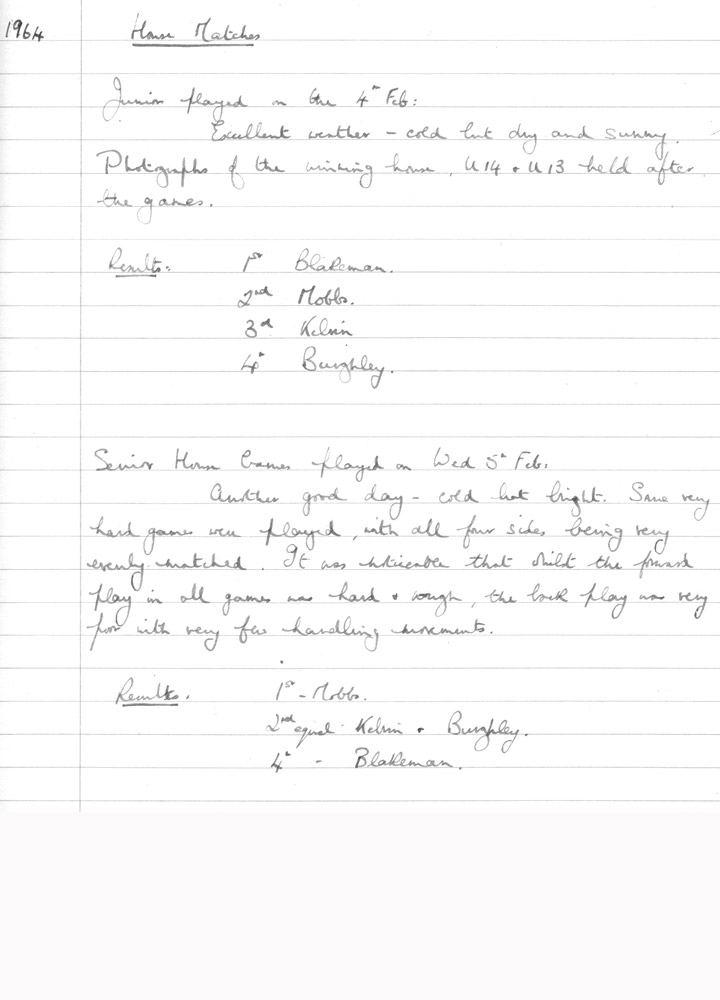 1964
House Matches
Junior played on the 4th Feb:
Excellent weather - cold but dry and sunny.
Photographs of the winning house, U14 & U13 held after
the games.
Results: 1st Blakeman.
2nd Mobbs.
3rd Kelvin
4th Burghley.
Senior House Games played on Wed 5th Feb:
Another good day - cold but bright. Some very
hard games were played, with all four sides being very
evenly matched. It was noticeable that whilst the forward
play in all games was hard & rough, the back play was very
poor with very few handling movements.
Results. 1st - Mobbs.
2nd equal - Kelvin & Burghley.
4th - Blakeman.